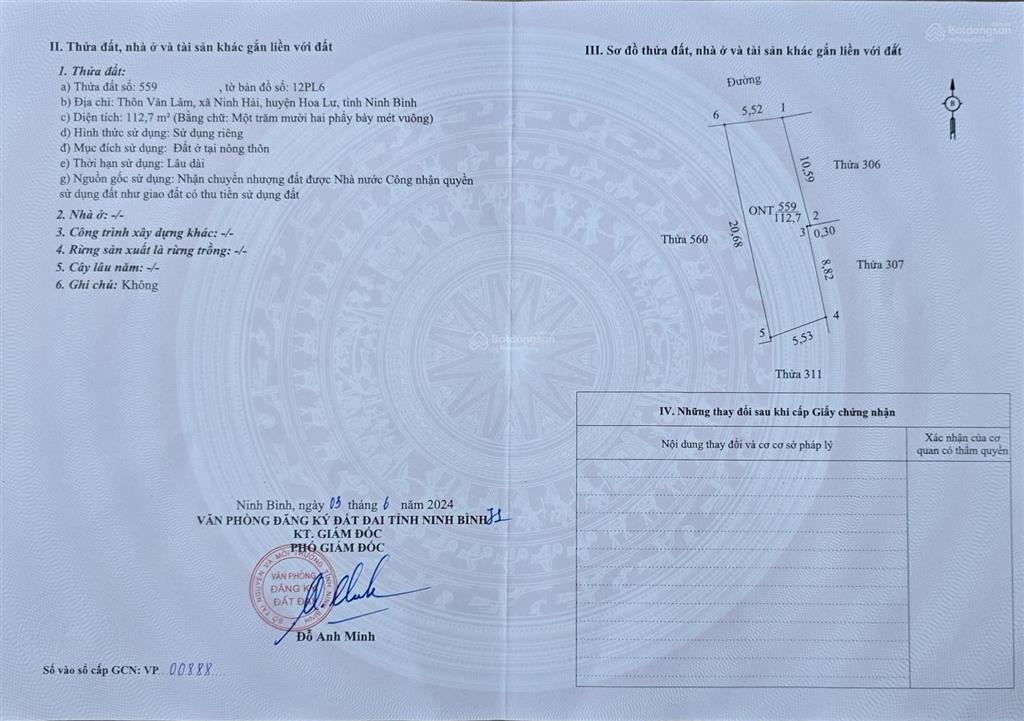 II. Thửa đất, nhà ở và tài sản khác gắn liền với đất
1. Thửa đất:
a) Thửa đất số: 559 , tờ bản đồ số: 12PL6
b) Địa chỉ: Thôn Văn Lâm, xã Ninh Hải, huyện Hoa Lư, tỉnh Ninh Bình
c) Diện tích: 112,7 m² (Bằng chữ: Một trăm mười hai phẩy bảy mét vuông)
d) Hình thức sử dụng: Sử dụng riêng
đ) Mục đích sử dụng: Đất ở tại nông thôn
e) Thời hạn sử dụng: Lâu dài
g) Nguồn gốc sử dụng: Nhận chuyển nhượng đất được Nhà nước Công nhận quyền
sử dụng đất như giao đất có thu tiền sử dụng đất
2. Nhà ở: -/-
3. Công trình xây dựng khác: -/-
4. Rừng sản xuất là rừng trồng: -/-
5. Cây lâu năm: -/-
6. Ghi chú: Không
Ninh Bình, ngày 03 tháng 6 năm 2024
VĂN PHÒNG ĐĂNG KÝ ĐẤT ĐAI TỈNH NINH BÌNH
KT. GIÁM ĐỐC
PHÓ GIÁM ĐỐC
SỞ TÀI NGUYÊN VÀ MÔI TRƯỜNG TỈNH NINH BÌNH
VĂN PHÒNG
ĐĂNG KÝ
ĐẤT ĐAI
Đỗ Anh Minh
Số vào sổ cấp GCN: VP 00888
III. Sơ đồ thửa đất, nhà ở và tài sản khác gắn liền với đất
Đường
6 5,52 1
B
10,59
Thửa 306
ONT 559
112,7
2
3 0,30
20,68
Thửa 560
8,82
Thửa 307
4
5 5,53
Thửa 311
IV. Những thay đổi sau khi cấp Giấy chứng nhận
Nội dung thay đổi và cơ cơ sở pháp lý
Xác nhận của cơ
quan có thẩm quyền
Batdongsan
Batdongsan